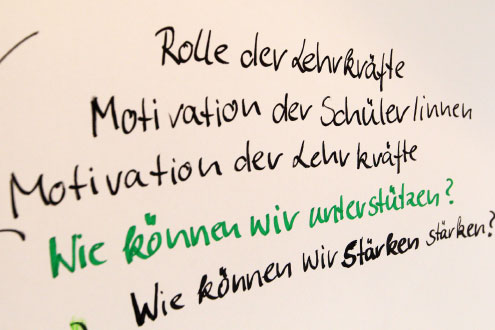 Rolle der Lehrkräfte
Motivation der Schüler/innen
Motivation der Lehrkräfte
Wie können wir unterstützen?
Wie können wir Stärken stärken?